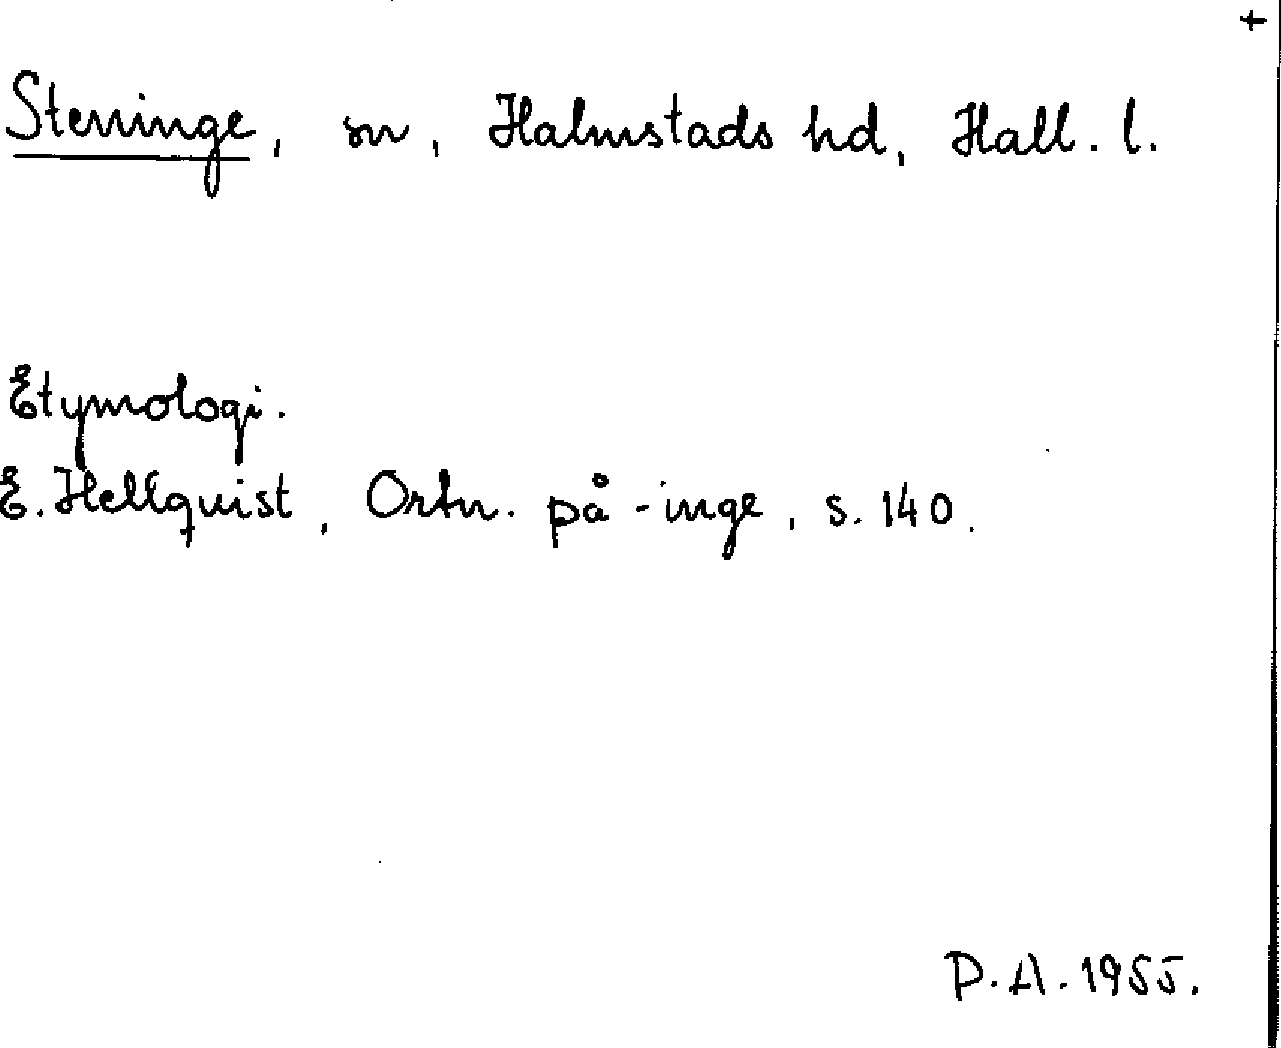 +
Steninge, sn, Halmstads hd, Hall. l.
Etymologi.
E. Hellquist, Ortn. på -inge, s. 140.
P.A. 1955.